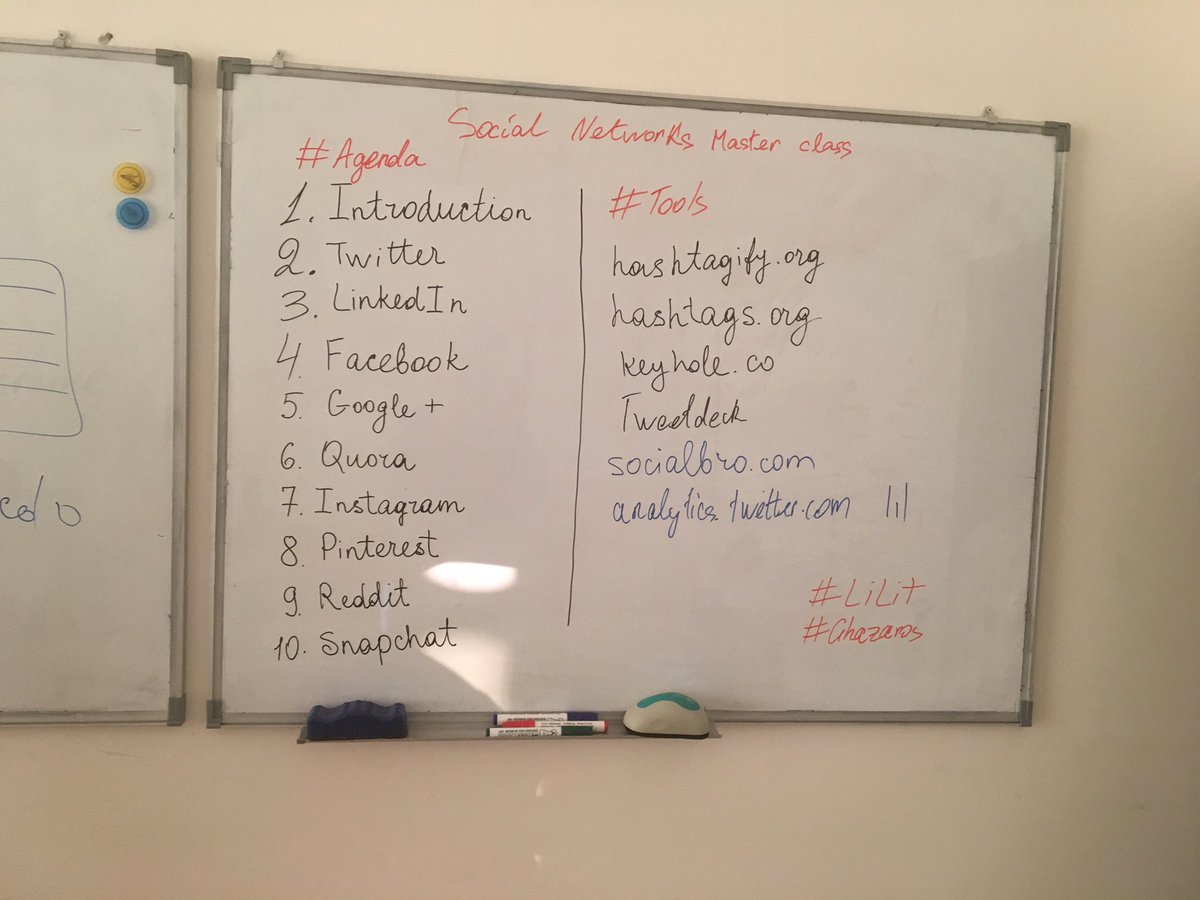 Social Networks Master class
#Agenda
1. Introduction
2. Twitter
3. LinkedIn
4. Facebook
5. Google +
6. Quora
7. Instagram
8. Pinterest
9. Reddit
10. Snapchat
#Tools
hashtagify.org
hashtags.org
keyhole.co
Tweetdeck
socialbro.com
analytics.twitter.com
#LiLit
#Ghazaros